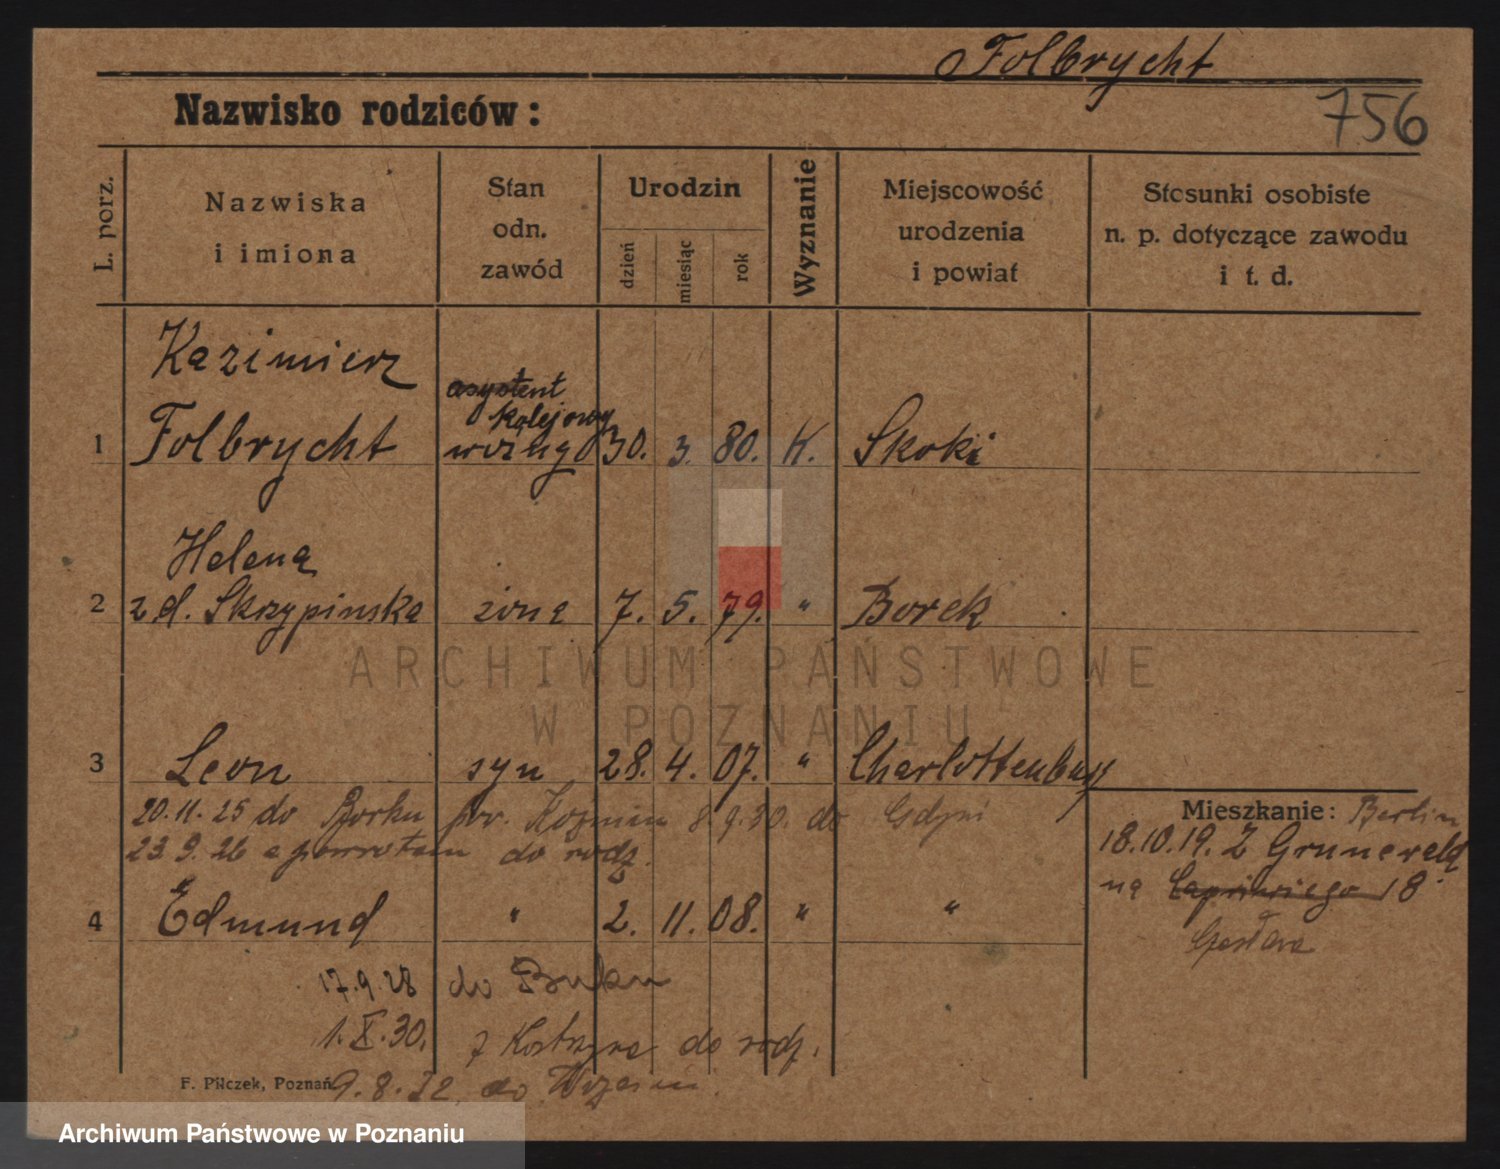 Folbrycht
Nazwisko rodziców:
756
L. porz.
Nazwiska
i imiona
Stan
odn.
zawód
Urodzin
dzień
miesiąc
rok
Wyznanie
Miejscowość
urodzenia
i powiat
Stosunki osobiste
n. p. dotyczące zawodu
i t. d.
Kazimierz
asystent
kolejowy
1 Folbrycht woźny 30. 3. 80. K. Skoki
Helena
2 z d. Skrzypinska żona 7. 5. 79. " Borek
ARCHIWUM PAŃSTWOWE
W POZNANIU
3 Leon syn 28. 4. 07. " Charlottenburg
20.11.25 do Borku pow. Koźmin 8.9.30. do Gdyni
23.9.26 z powrotem do rodz.
Mieszkanie: Berlin
18.10.19. Z Grunewald
na 18
4 Edmund " 2. 11. 08. " "
17.9.28 do Buku
1.X.30. z Kostrzyna do rodz.
F. Pilczek, Poznań
9.8.32. do Wrześni.
Archiwum Państwowe w Poznaniu